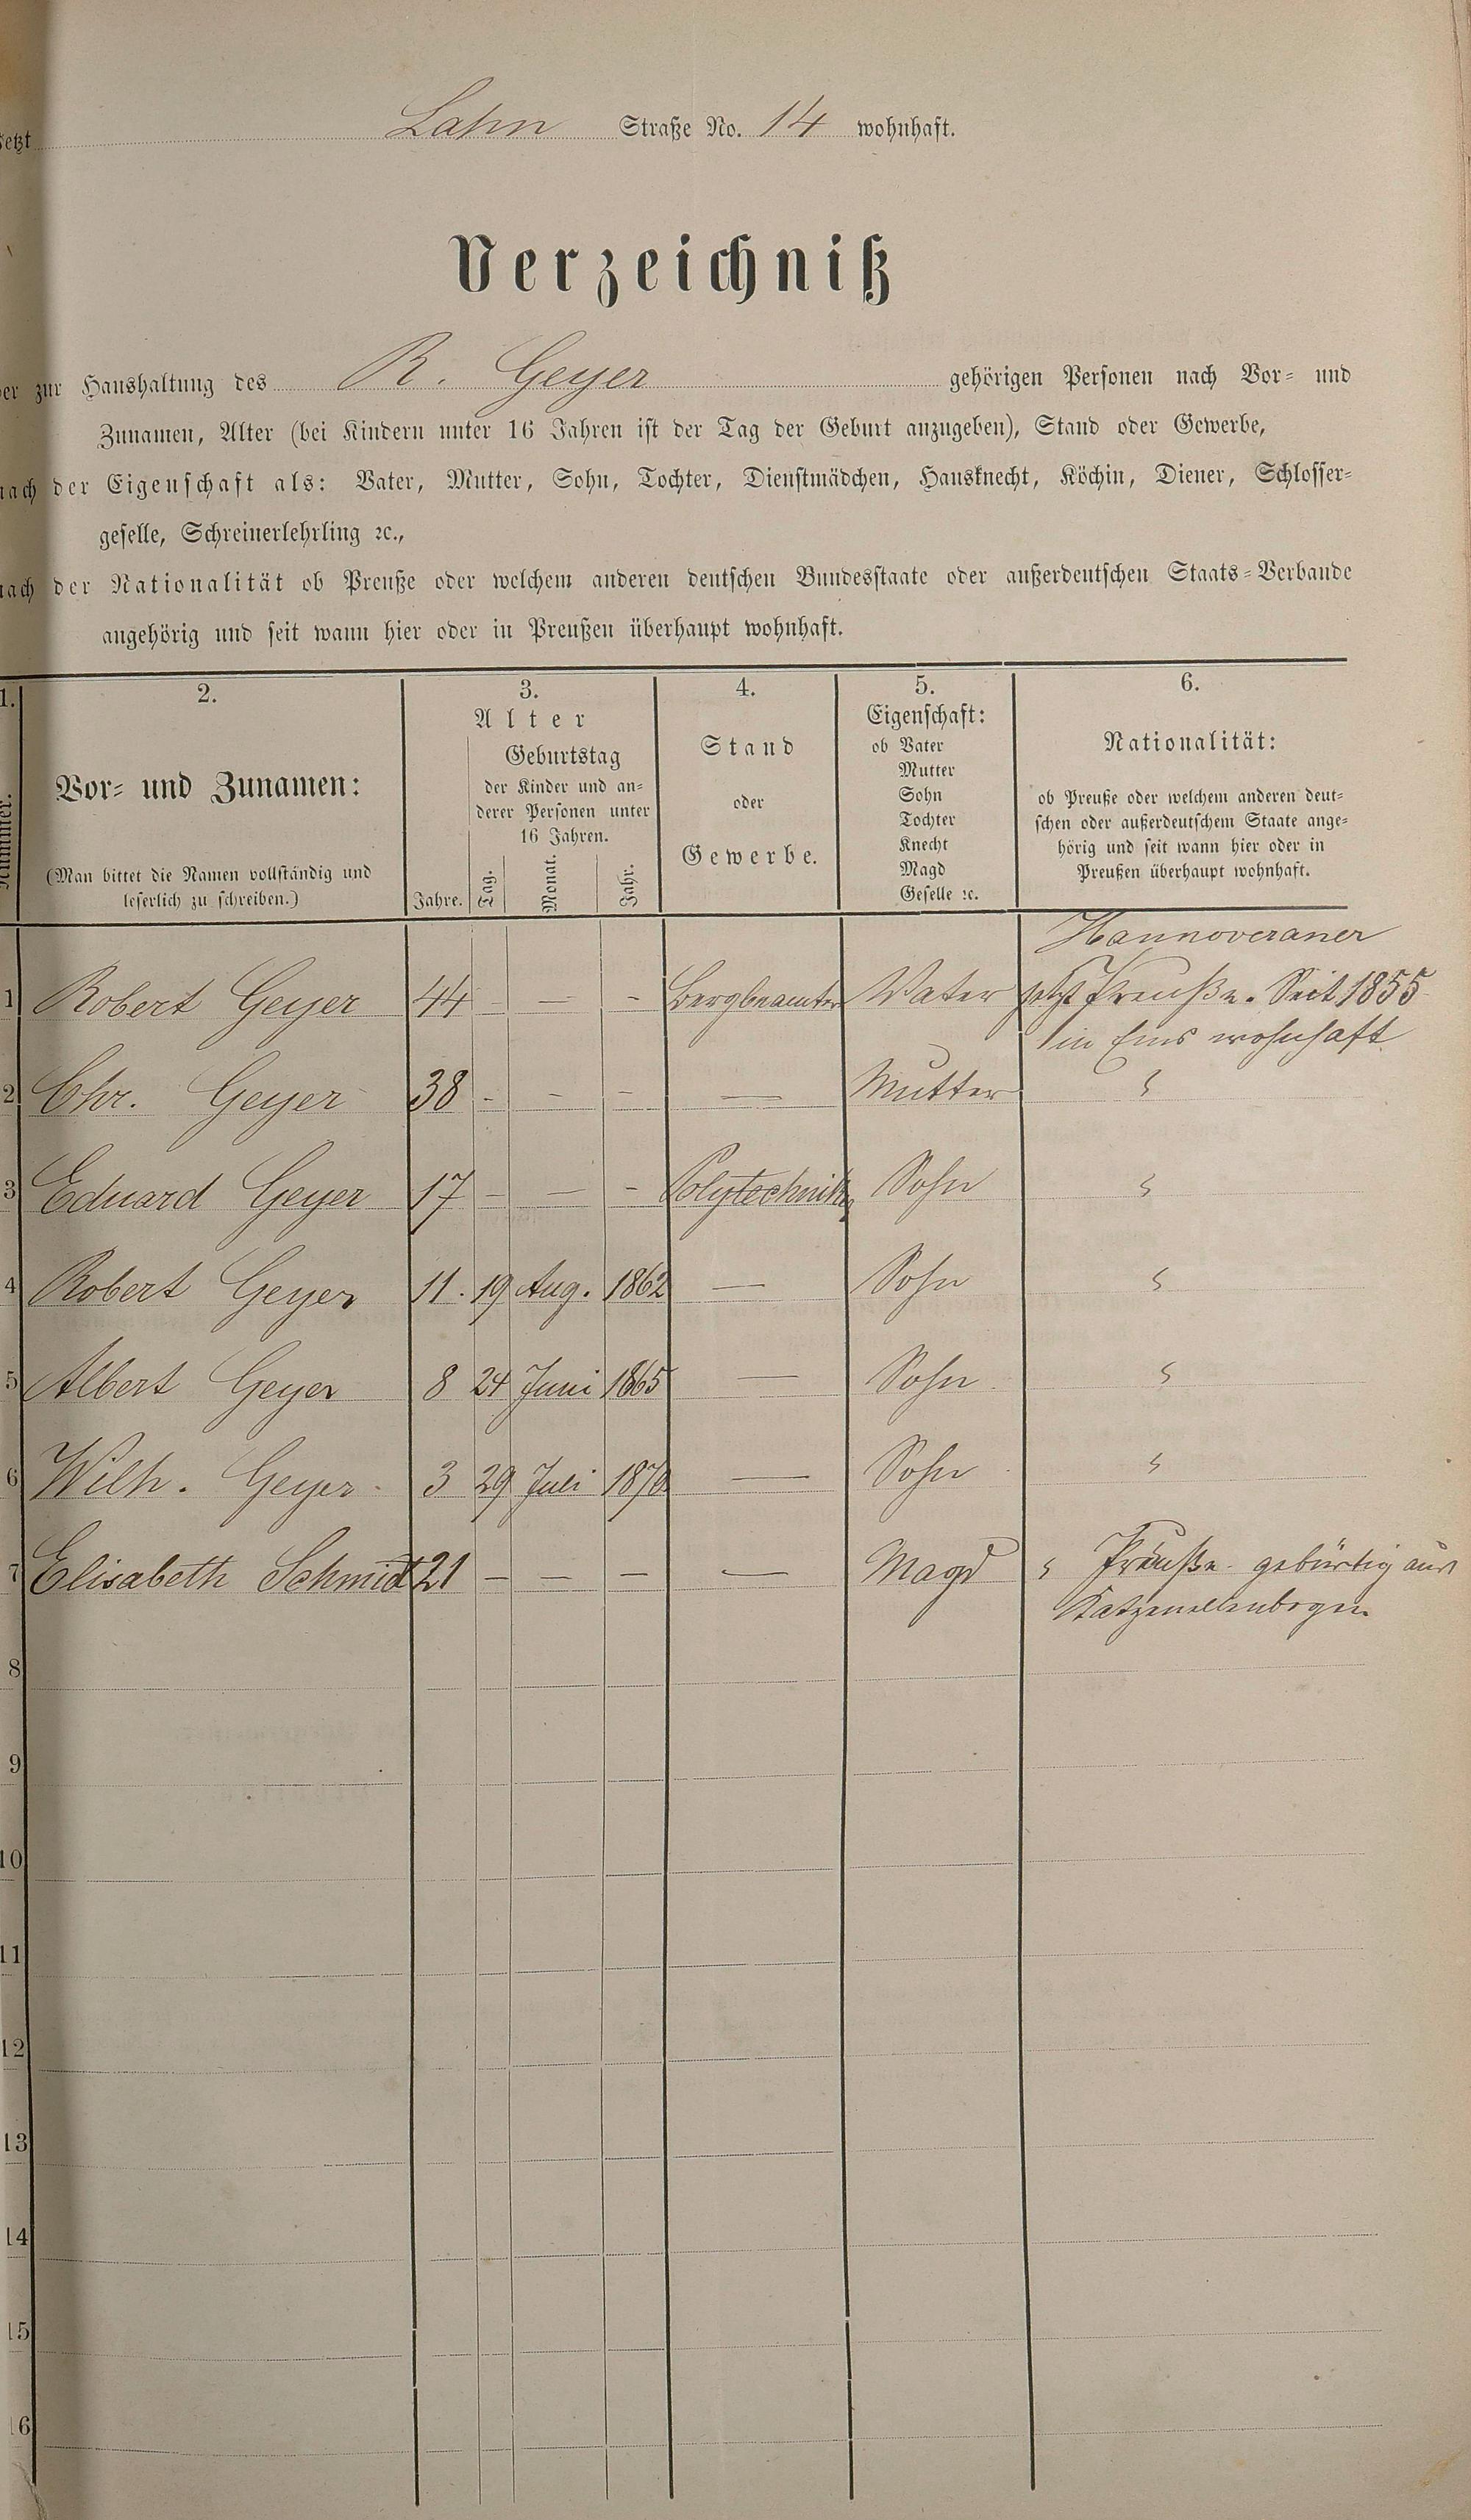 jetzt Lahn Straße No. 14 wohnhaft.
Verzeichniß
der zur Haushaltung des R. Geyer gehörigen Personen nach Vor- und
Zunamen, Alter (bei Kindern unter 16 Jahren ist der Tag der Geburt anzugeben), Stand oder Gewerbe,
nach der Eigenschaft als: Vater, Mutter, Sohn, Tochter, Dienstmädchen, Hausknecht, Köchin, Diener, Schlosser-
geselle, Schreinerlehrling ꝛc.,
nach der Nationalität ob Preuße oder welchem anderen deutschen Bundesstaate oder außerdeutschen Staats-Verbande
angehörig und seit wann hier oder in Preußen überhaupt wohnhaft.
1.
Nummer.
2.
Vor- und Zunamen:
(Man bittet die Namen vollständig und
leserlich zu schreiben.)
3.
Alter
Jahre.
Geburtstag
der Kinder und an-
derer Personen unter
16 Jahren.
Tag. Monat. Jahr.
4.
Stand
oder
Gewerbe.
5.
Eigenschaft:
ob Vater
Mutter
Sohn
Tochter
Knecht
Magd
Geselle ꝛc.
6.
Nationalität:
ob Preuße oder welchem anderen deut-
schen oder außerdeutschem Staate ange-
hörig und seit wann hier oder in
Preußen überhaupt wohnhaft.
Hannoveraner
1 Robert Geyer 44 - — - Bergbeamter Vater jetzt Preuße. Seit 1855
in Ems wohnhaft
2 Chr. Geyer 38 - - - — Mutter "
3 Eduard Geyer 17 - — - Polytechniker Sohn "
4 Robert Geyer 11. 19 Aug. 1862 — Sohn "
5 Albert Geyer 8 24 Juni 1865 — Sohn "
6 Wilh. Geyer 3 29 Juli 1870 — Sohn "
7 Elisabeth Schmidt 21 - - - — Magd " Preuße gebürtig aus
Katzenellenbogen
8
9
10
11
12
13
14
15
16